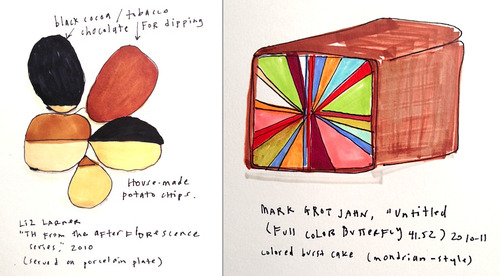 black cocoa / tobacco
chocolate / FOR dipping
House-made
potato chips.
Liz Larner
"TH From the AFTER Florescence
series," 2010
(served on porcelain plate)
MARK GROTJAHN, "Untitled
(Full Color Butterfly 41.52) 2010-11
colored bundt cake (mondrian-style)